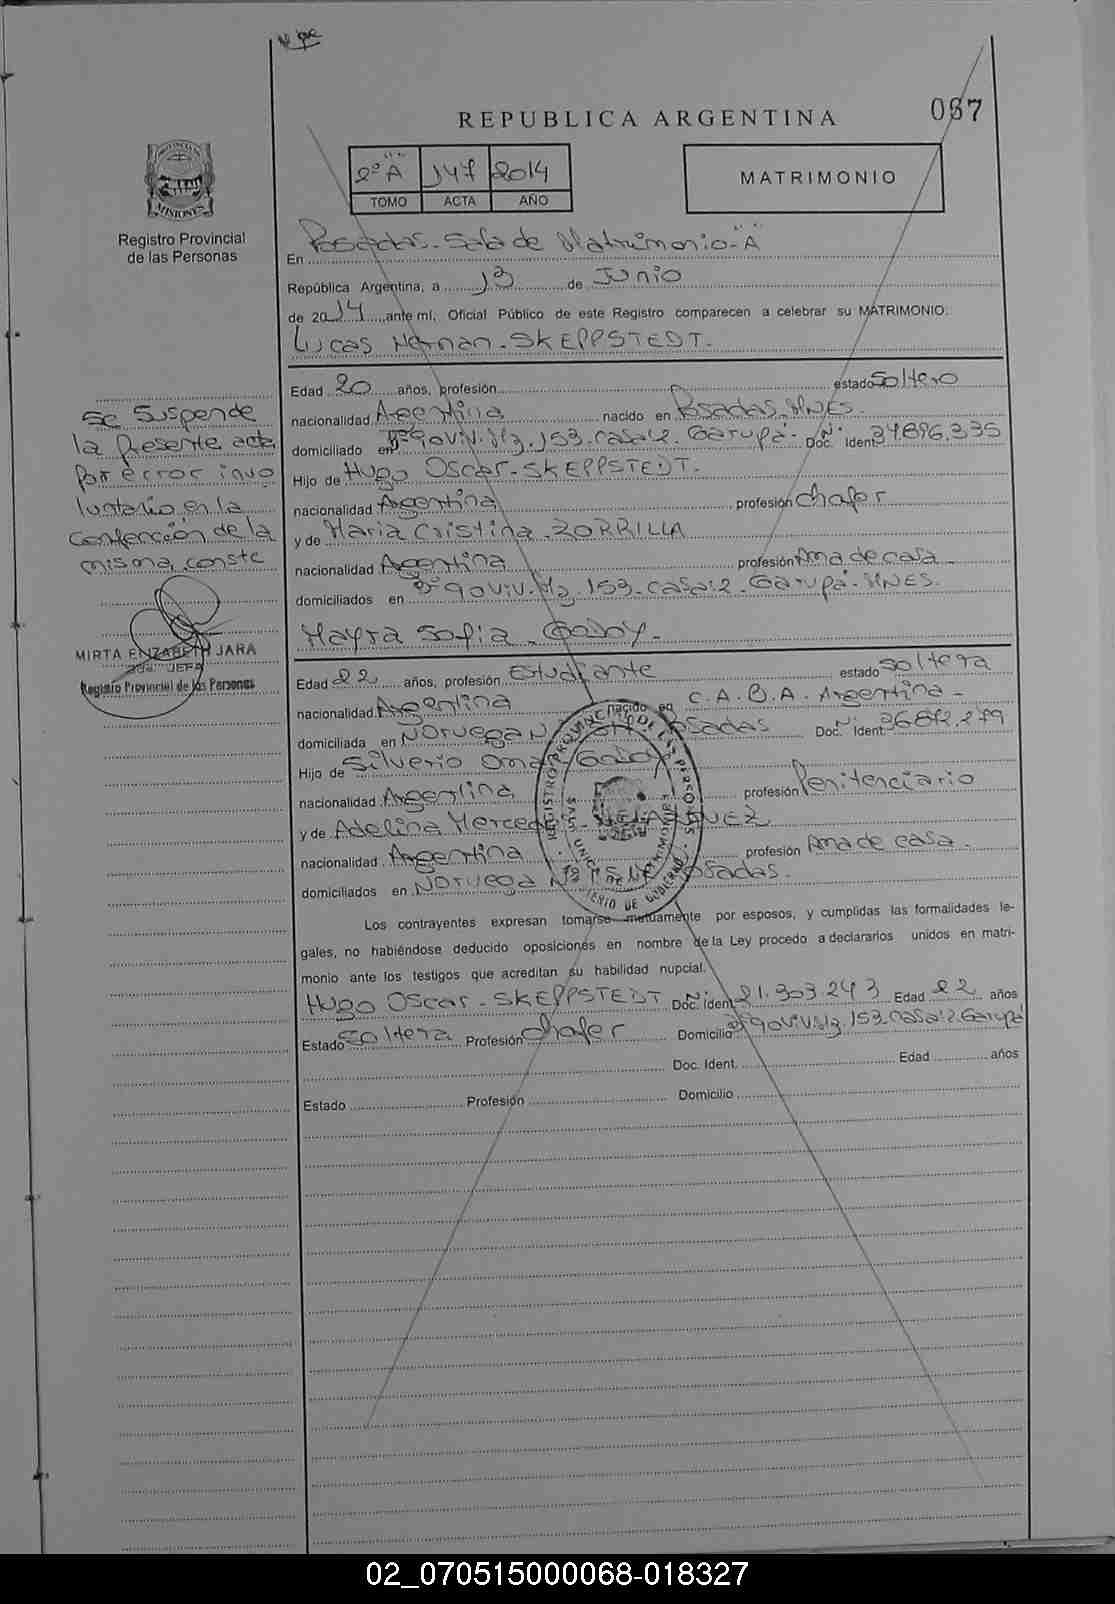 REPUBLICA ARGENTINA
067
2º "A" 147 2014
TOMO ACTA AÑO
MATRIMONIO
PROVINCIA DE MISIONES
Registro Provincial
de las Personas
En Posadas - Sala de Matrimonio - "A"
República Argentina, a 13 de Junio
de 2014 ante mí, Oficial Público de este Registro comparecen a celebrar su MATRIMONIO:
Lucas Hernan - SKEPPSTEDT.
Edad 20 años, profesión estado Soltero
nacionalidad Argentina nacido en Posadas. MNES.
domiciliado en Bº 90 Viv. Mz. 153. Casa: 2. Garupá - Doc. Ident. Nº
Hijo de Hugo Oscar - SKEPPSTEDT.
nacionalidad Argentina profesión Chofer
y de Maria Cristina - ZORRILLA
nacionalidad Argentina profesión Ama de casa
domiciliados en Bº 90 Viv. Mz. 153 - Casa: 2 - Garupá - MNES.
Mayra Sofia - Godoy -
Edad 22 años, profesión Estudiante estado Soltera
nacionalidad Argentina nacido en C.A.B.A. Argentina -
domiciliada en Noruega Posadas Doc. Ident. Nº
Hijo de Silverio Omar Godoy
nacionalidad Argentina profesión Penitenciario
y de Adelina Mercedes -
nacionalidad Argentina profesión Ama de casa.
domiciliados en Noruega Posadas.
Los contrayentes expresan tomarse mutuamente por esposos, y cumplidas las formalidades le-
gales, no habiéndose deducido oposiciones en nombre de la Ley procedo a declararlos unidos en matri-
monio ante los testigos que acreditan su habilidad nupcial.
Hugo Oscar - SKEPPSTEDT Doc. Ident. Nº 21.303.243 Edad 22 años
Estado Soltera Profesión Chofer Domicilio Bº 90 Viv. Mz. 153. Casa: 2. Garupá
Doc. Ident. Edad años
Estado Profesión Domicilio
Se Suspende
la presente acta
por error invo
luntario en la
confección de la
misma, conste
MIRTA ELIZABETH JARA
JEFA
Registro Provincial de las Personas
02_070515000068-018327